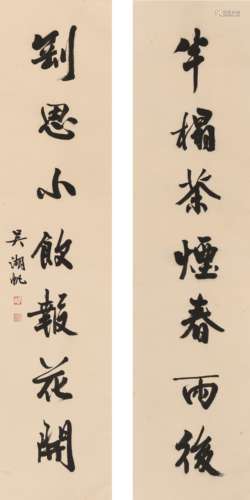 半榻茶煙春雨後
劉思小飲報花開
吳湖帆